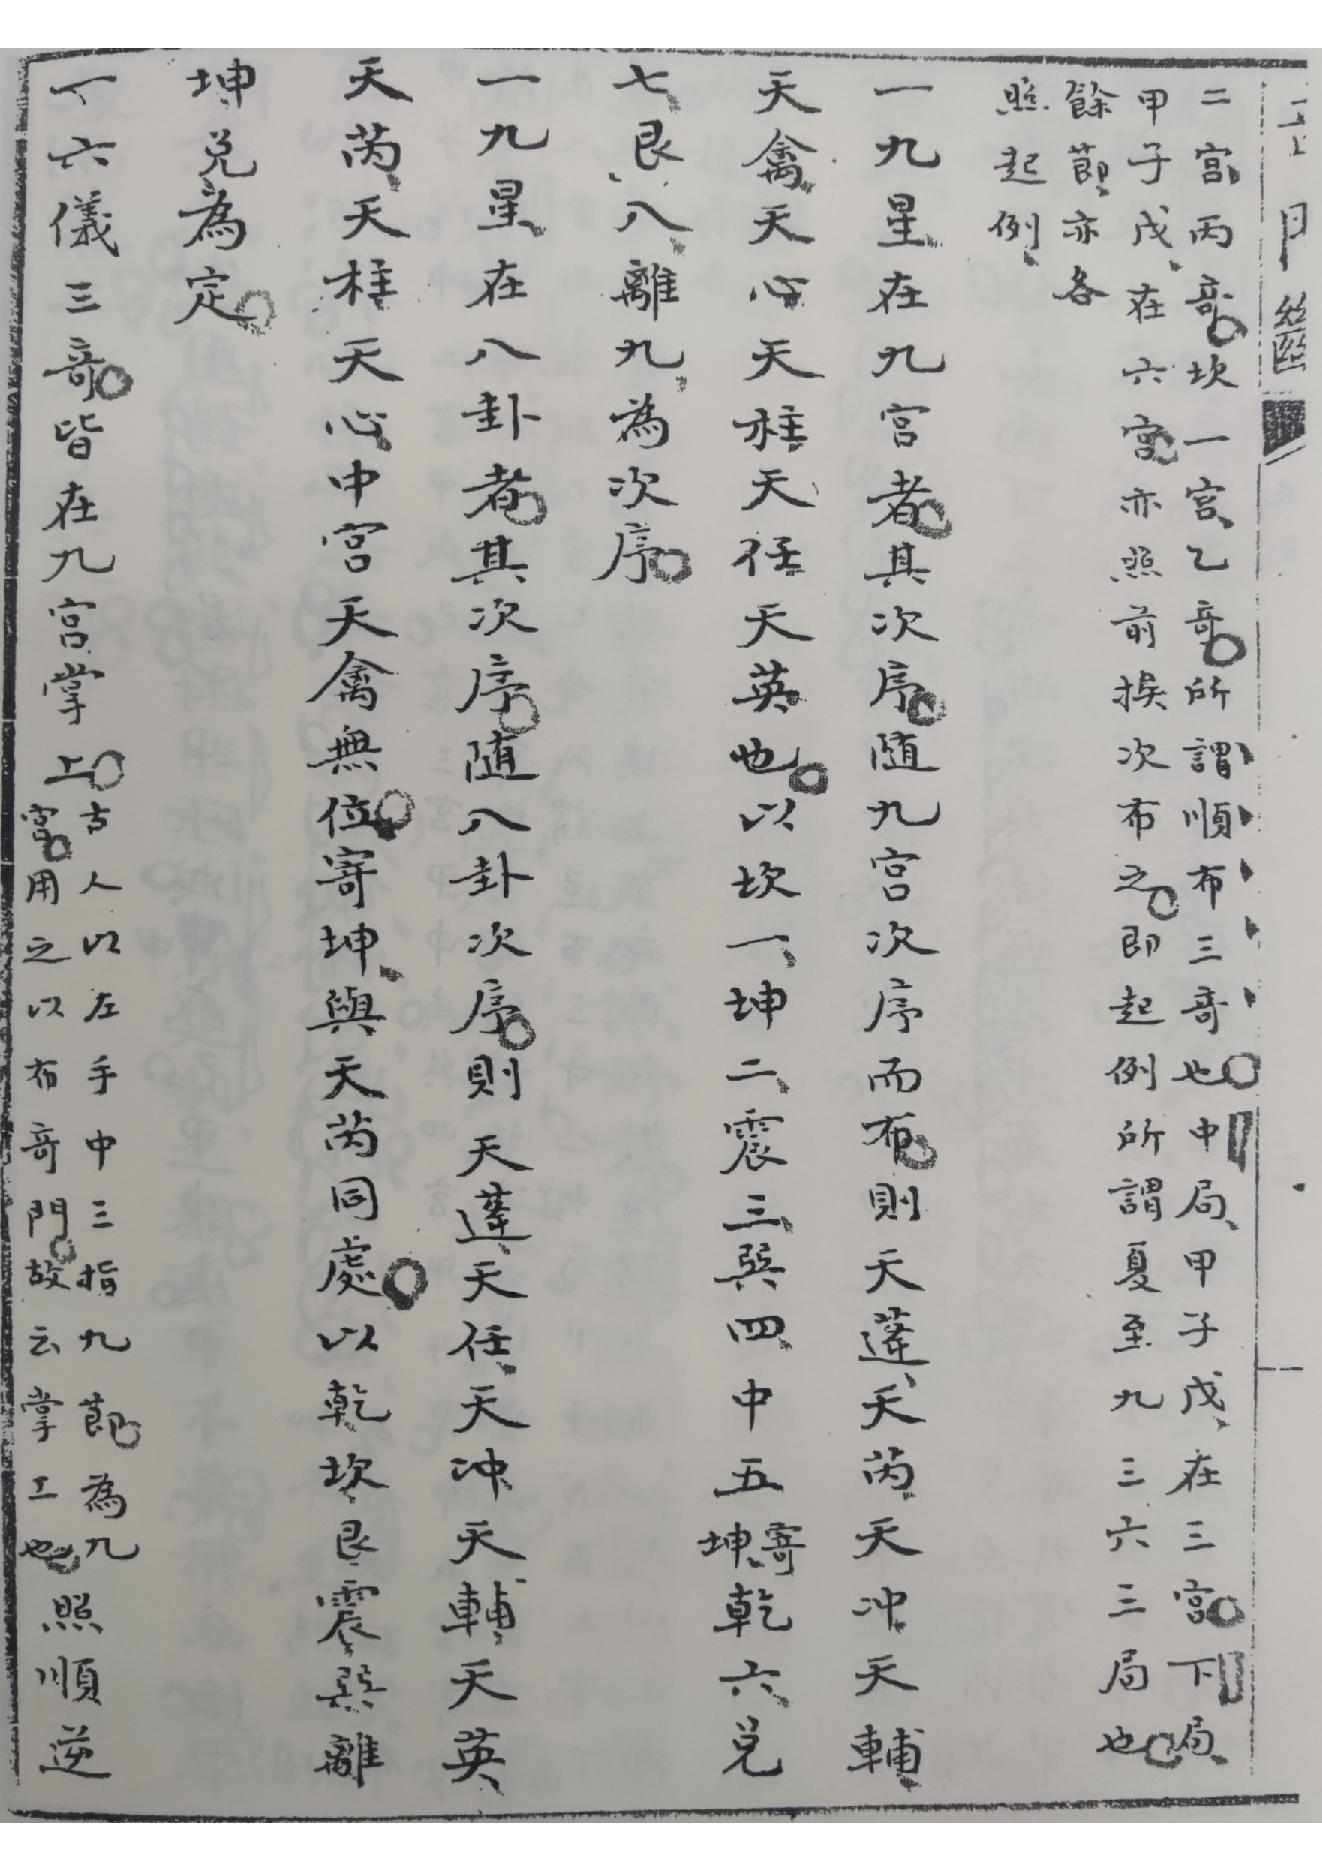 二宮丙竒坎一宮乙竒所謂順布三竒也中局甲子戊在三宮下局
甲子戊在六宮亦照前挨次布之即起例所謂夏至九三六三局也
餘節亦各
照起例
一九星在九宮者其次序随九宮次序而布則天蓬天芮天冲天輔
天禽天心天柱天任天英也以坎一坤二震三巽四中五寄坤乾六兌
七艮八離九為次序
一九星在八卦者其次序随八卦次序則天蓬天任天冲天輔天英
天芮天柱天心中宮天禽無位寄坤與天芮同處以乾坎艮震巽離
坤兌為定
一六儀三竒皆在九宮掌上
古人以左手中三指九節為九
宮用之以布竒門故云掌上也
照順逆